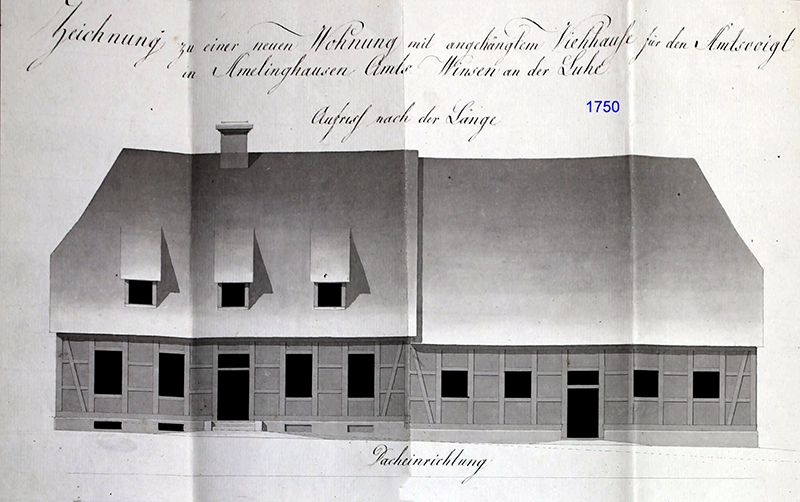 Zeichnung zu einer neuen Wohnung mit angehängtem Viehhause für den Amtsvoigt
in Amelinghausen Amts Winsen an der Luhe
1750
Aufriss nach der Länge
Dacheinrichtung